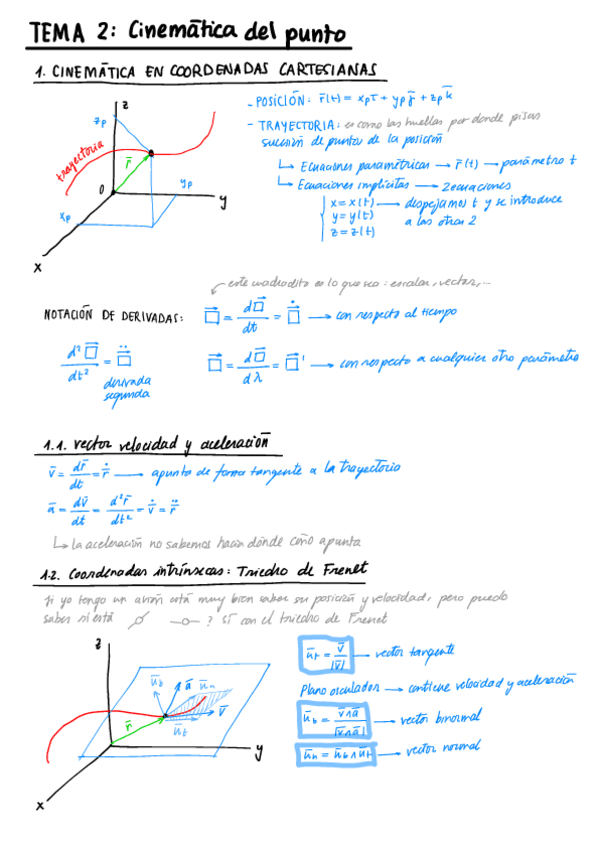 TEMA 2: Cinemática del punto
1. CINEMÁTICA EN COORDENADAS CARTESIANAS
z
zp
trayectoria
r̄
O
yp
y
xp
x
- POSICIÓN: r̄(t) = xp ī + yp j̄ + zp k̄
- TRAYECTORIA: es como las huellas por donde pisas
sucesión de puntos de la posición
↳ Ecuaciones paramétricas → r̄(t) → parámetro t
↳ Ecuaciones implícitas → 2 ecuaciones
x = x(t) → despejamos t y se introduce
y = y(t) a las otras 2
z = z(t)
este cuadradito es lo que sea: escalar, vector, ...
NOTACIÓN DE DERIVADAS: □⃗ = d□⃗/dt = □̇ → con respecto al tiempo
d²□⃗/dt² = □̈ derivada segunda
□⃗ = d□⃗/dλ = □⃗' → con respecto a cualquier otro parámetro
1.1. Vector velocidad y aceleración
v̄ = dr̄/dt = r̄̇ → apunta de forma tangente a la trayectoria
ā = dv̄/dt = d²r̄/dt² = v̄̇ = r̄̈
↳ la aceleración no sabemos hacia dónde coño apunta
1.2. Coordenadas intrínsecas: Triedro de Frenet
Si yo tengo un avión está muy bien saber su posición y velocidad, pero puedo
saber si está ? SÍ con el triedro de Frenet
z
ūb
ā
ūn
v̄
ūt
r̄
y
x
ūt = v̄/|v̄| → vector tangente
Plano osculador → contiene velocidad y aceleración
ūb = v̄∧ā/|v̄∧ā| → vector binormal
ūn = ūb∧ūt → vector normal